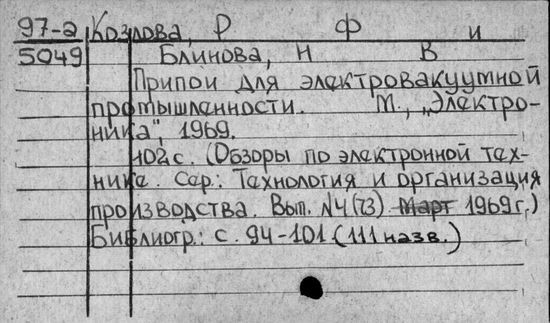 97-2 Козлова, Р Ф и
5049 Блинова, Н В
Припои для электровакуумной
промышленности. М., „Электро-
ника", 1969.
102 с. (Обзоры по электронной тех-
нике. Сер.: Технология и организация
производства. Вып. №4(73) Март 1969 г.)
Библиогр.: с. 94-101 (111 назв.)